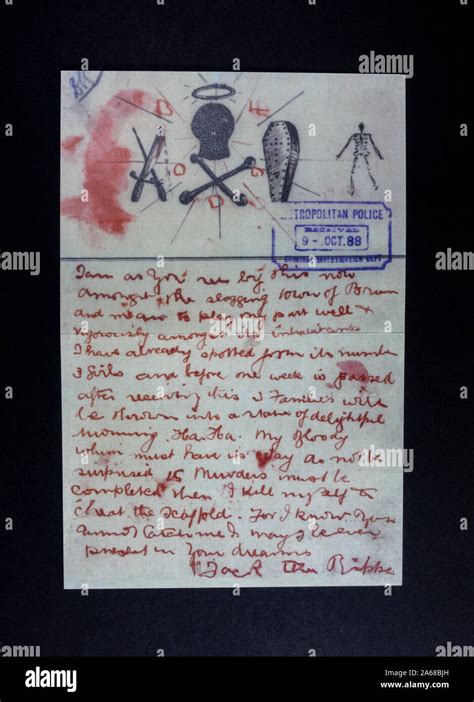 TROPOLITAN POLICE
RECEIVED
9 - OCT. 88
CRIMINAL INVESTIGATION DEPT
I am as you see by this now
amongst the slogging town of Brum
and mean to play my part well &
vigorously amongst its inhabitants
I have already spotted from its number
3 girls and before one week is passed
after receiving this 3 Families will
be thrown into a state of delightful
mourning. Ha. Ha. My Bloody
whim must have its way do not be
surprised 15 Murders must be
completed then I kill myself to
cheat the scaffold. For I know you
cannot catch me & I may be ever
present in your dreams
Jack the Ripper
alamy
Image ID: 2A68BJH
www.alamy.com